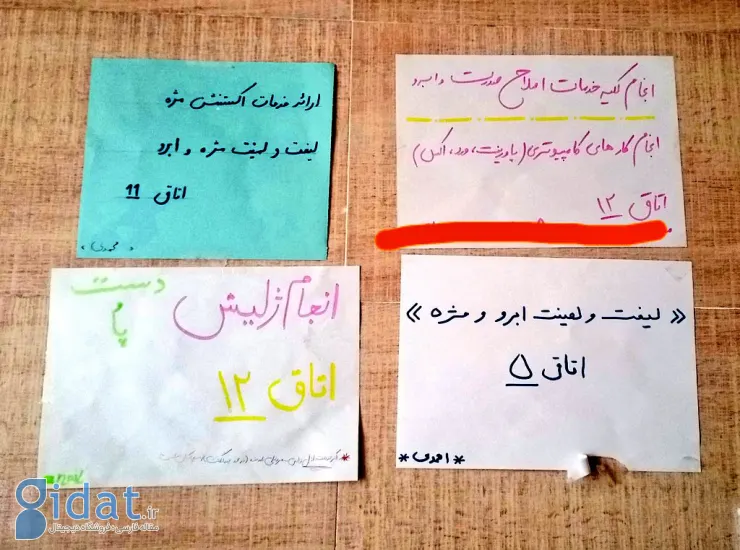 انجام کلیه خدمات اصلاح صورت و ابرو
انجام کارهای کامپیوتری (پاورپوینت، ورد، اکسل)
اتاق ۱۲
ارائه خدمات اکستنشن مژه
لیفت و لمینت مژه و ابرو
اتاق 11
انجام ژلیش
دست
پا
اتاق ۱۲
« لیفت و لمینت ابرو و مژه »
اتاق ۵
* احمدی *
gidat.ir
مقاله فارسی، فروشگاه دیجیتال